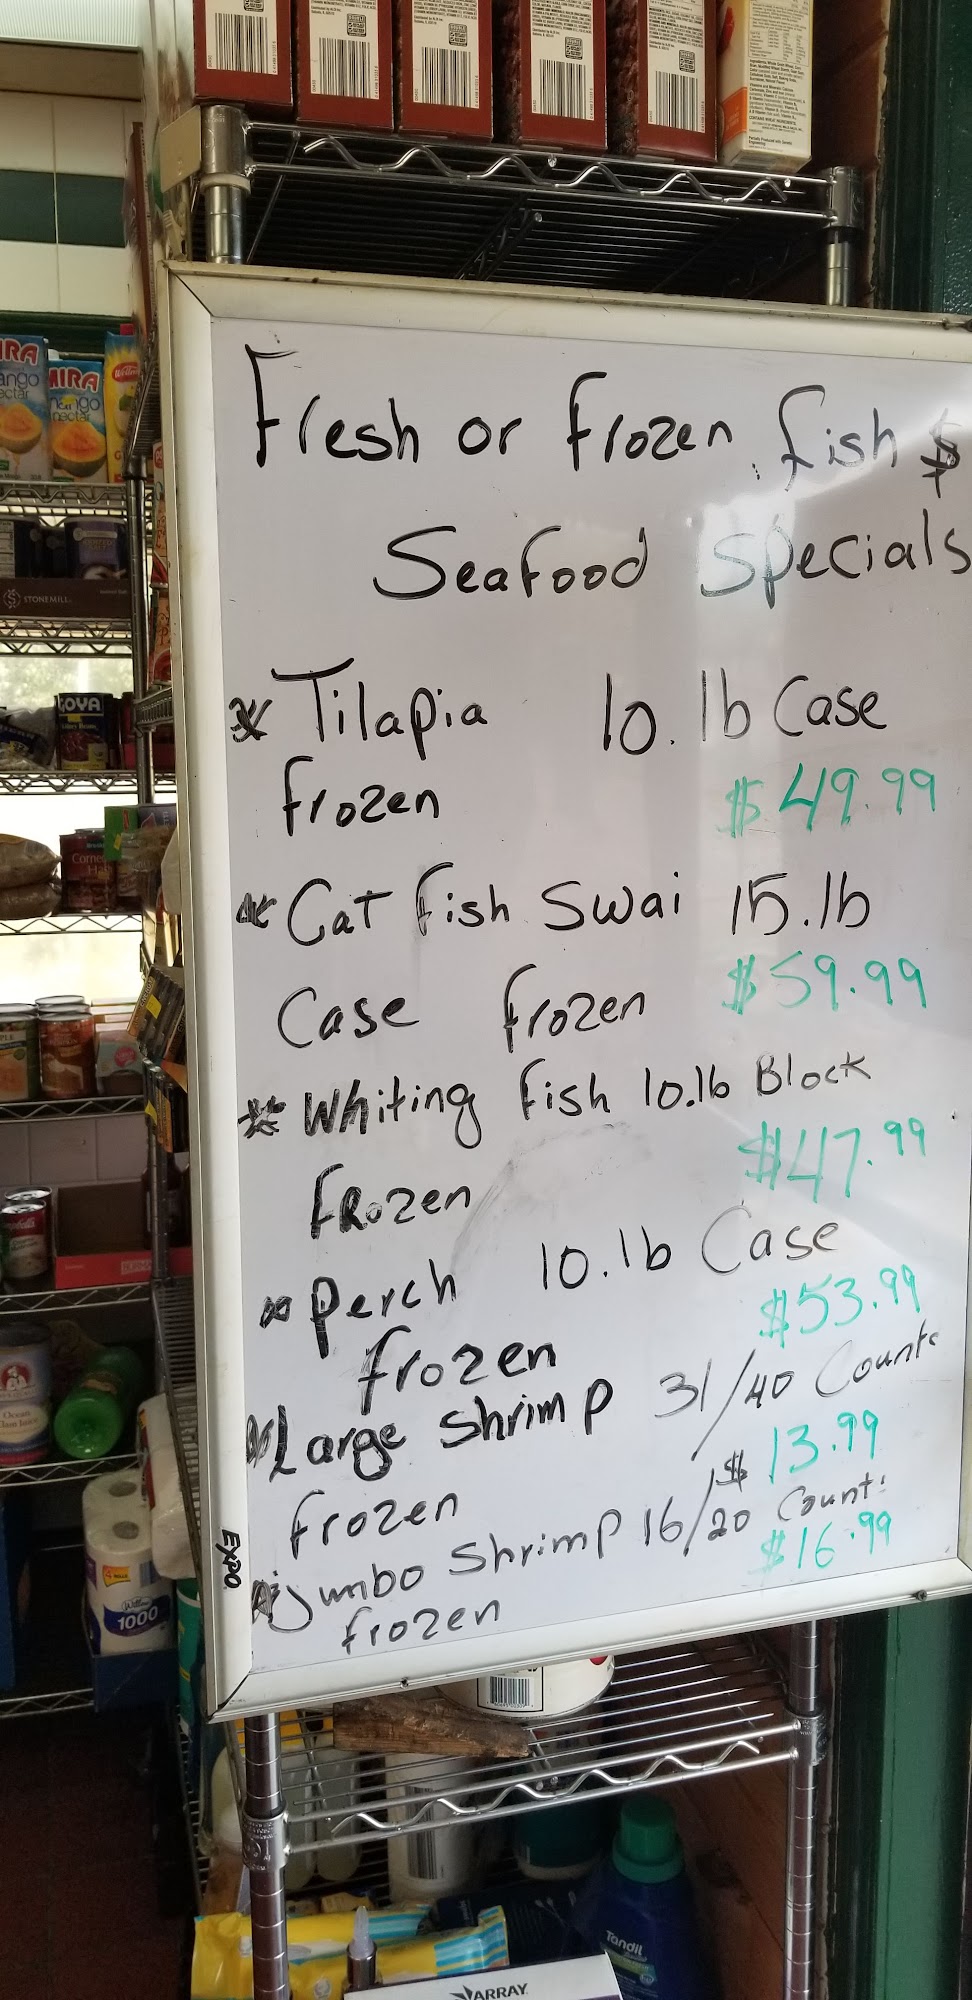 Fresh or Frozen fish $
Seafood Specials
Tilapia 10.lb Case
Frozen $49.99
Cat fish Swai 15.lb
Case frozen $59.99
Whiting Fish 10.lb Block
FRozen $47.99
Perch 10.lb Case
frozen $53.99
Large Shrimp 31/40 Count
frozen $13.99
jumbo Shrimp 16/20 Count:
frozen $16.99
EXPO
MIRA
mango
nectar
STONEMILL
GOYA
Corned
Ocean
Clam Juice
1000
Tandil
ARRAY